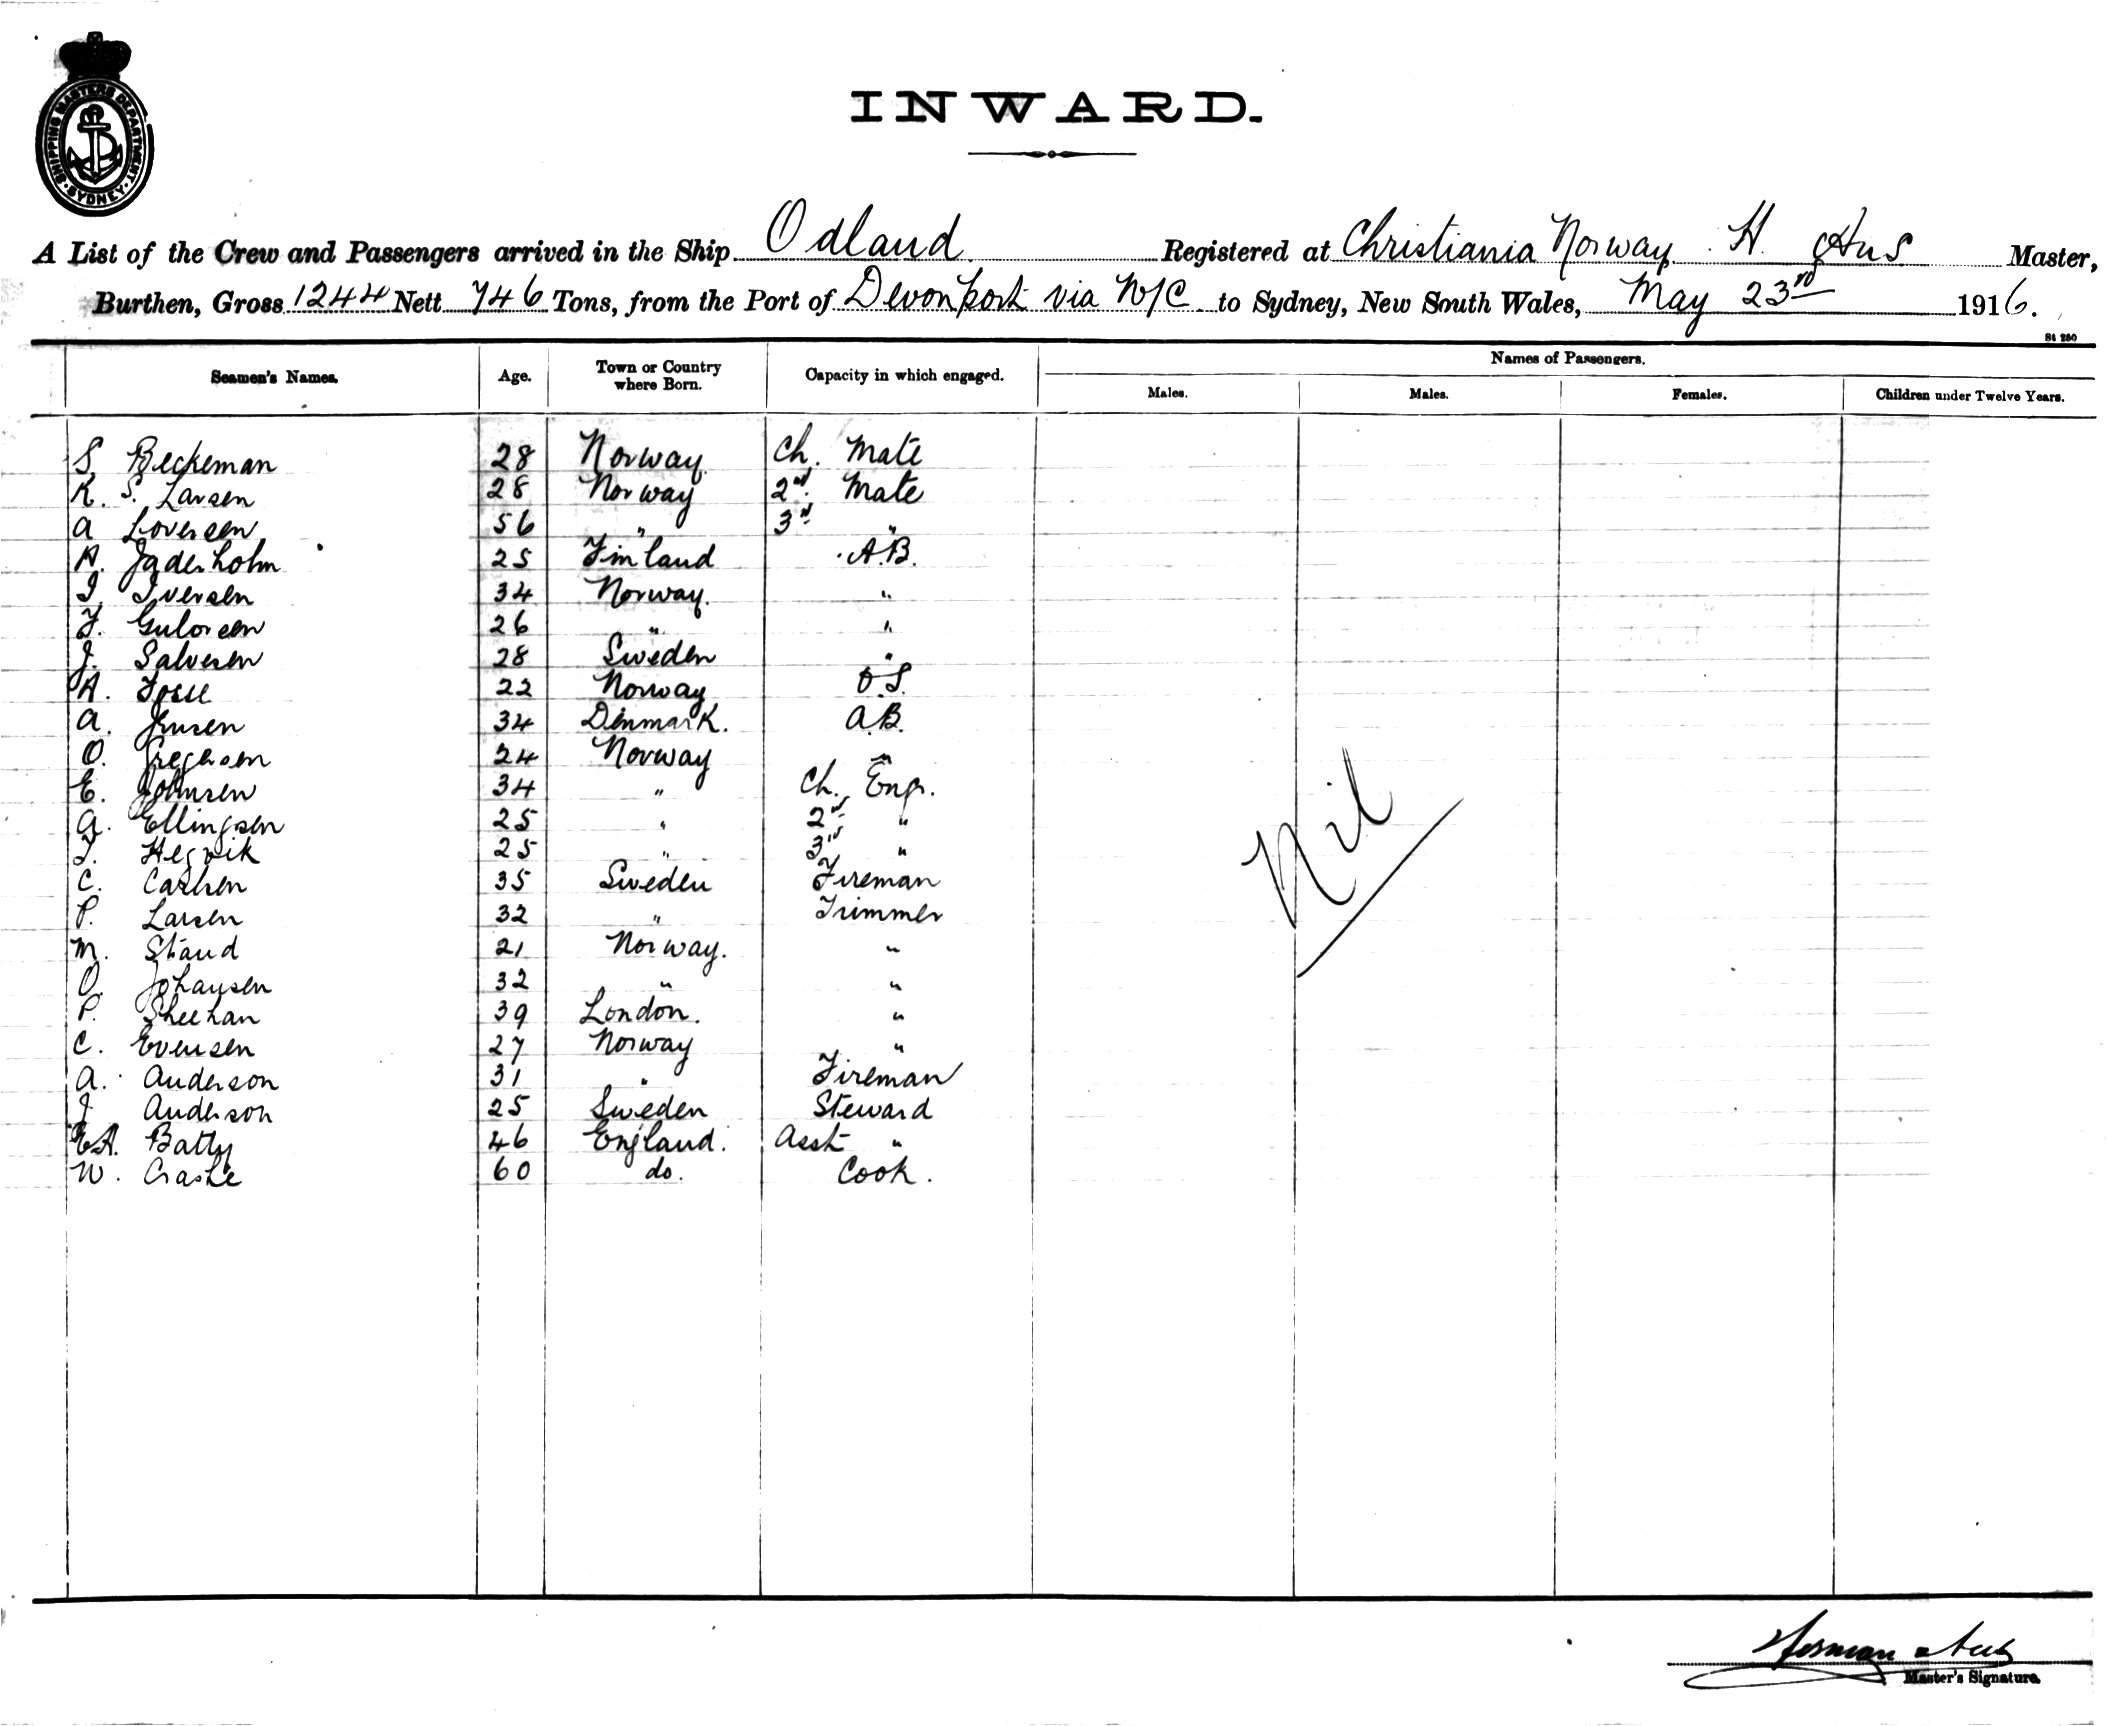 SHIPPING MASTERS DEPARTMENT
SYDNEY
INWARD.
A List of the Crew and Passengers arrived in the Ship Odland Registered at Christiania Norway H. Hus Master,
Burthen, Gross 1244 Nett 746 Tons, from the Port of Devonport via N/C to Sydney, New South Wales, May 23rd 1916.
St 250
Seamen's Names. Age. Town or Country where Born. Capacity in which engaged. Names of Passengers.
Males. Males. Females. Children under Twelve Years.
S. Beckeman 28 Norway Ch. Mate
K. S. Larsen 28 Norway 2nd Mate
A Loversen 56 " 3rd "
A. Jaderholm 25 Finland A.B.
I. Iversen 34 Norway. "
F. Gulorsen 26 " "
J. Salvesen 28 Sweden "
A. 22 Norway O.S.
A. Jensen 34 Denmark. A.B.
O. Gregersen 24 Norway "
E. Johnsen 34 " Ch. Engr.
A. Ellingsen 25 " 2nd "
T. Hegvik 25 " 3rd "
C. Carlsen 35 Sweden Fireman
P. Larsen 32 " Trimmer
M. Staud 21 Norway. "
O. Johansen 32 " "
P. Sheehan 39 London. "
C. Evensen 27 Norway "
A. Anderson 31 " Fireman
J. Anderson 25 Sweden Steward
E.A. Batty 46 England. Asst "
W. Craske 60 do. Cook.
Nil
Herman Hus
Master's Signature.